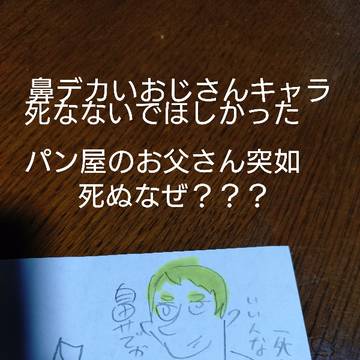 鼻デカいおじさんキャラ
死なないでほしかった
パン屋のお父さん突如
死ぬなぜ？？？
鼻
いいんな
死